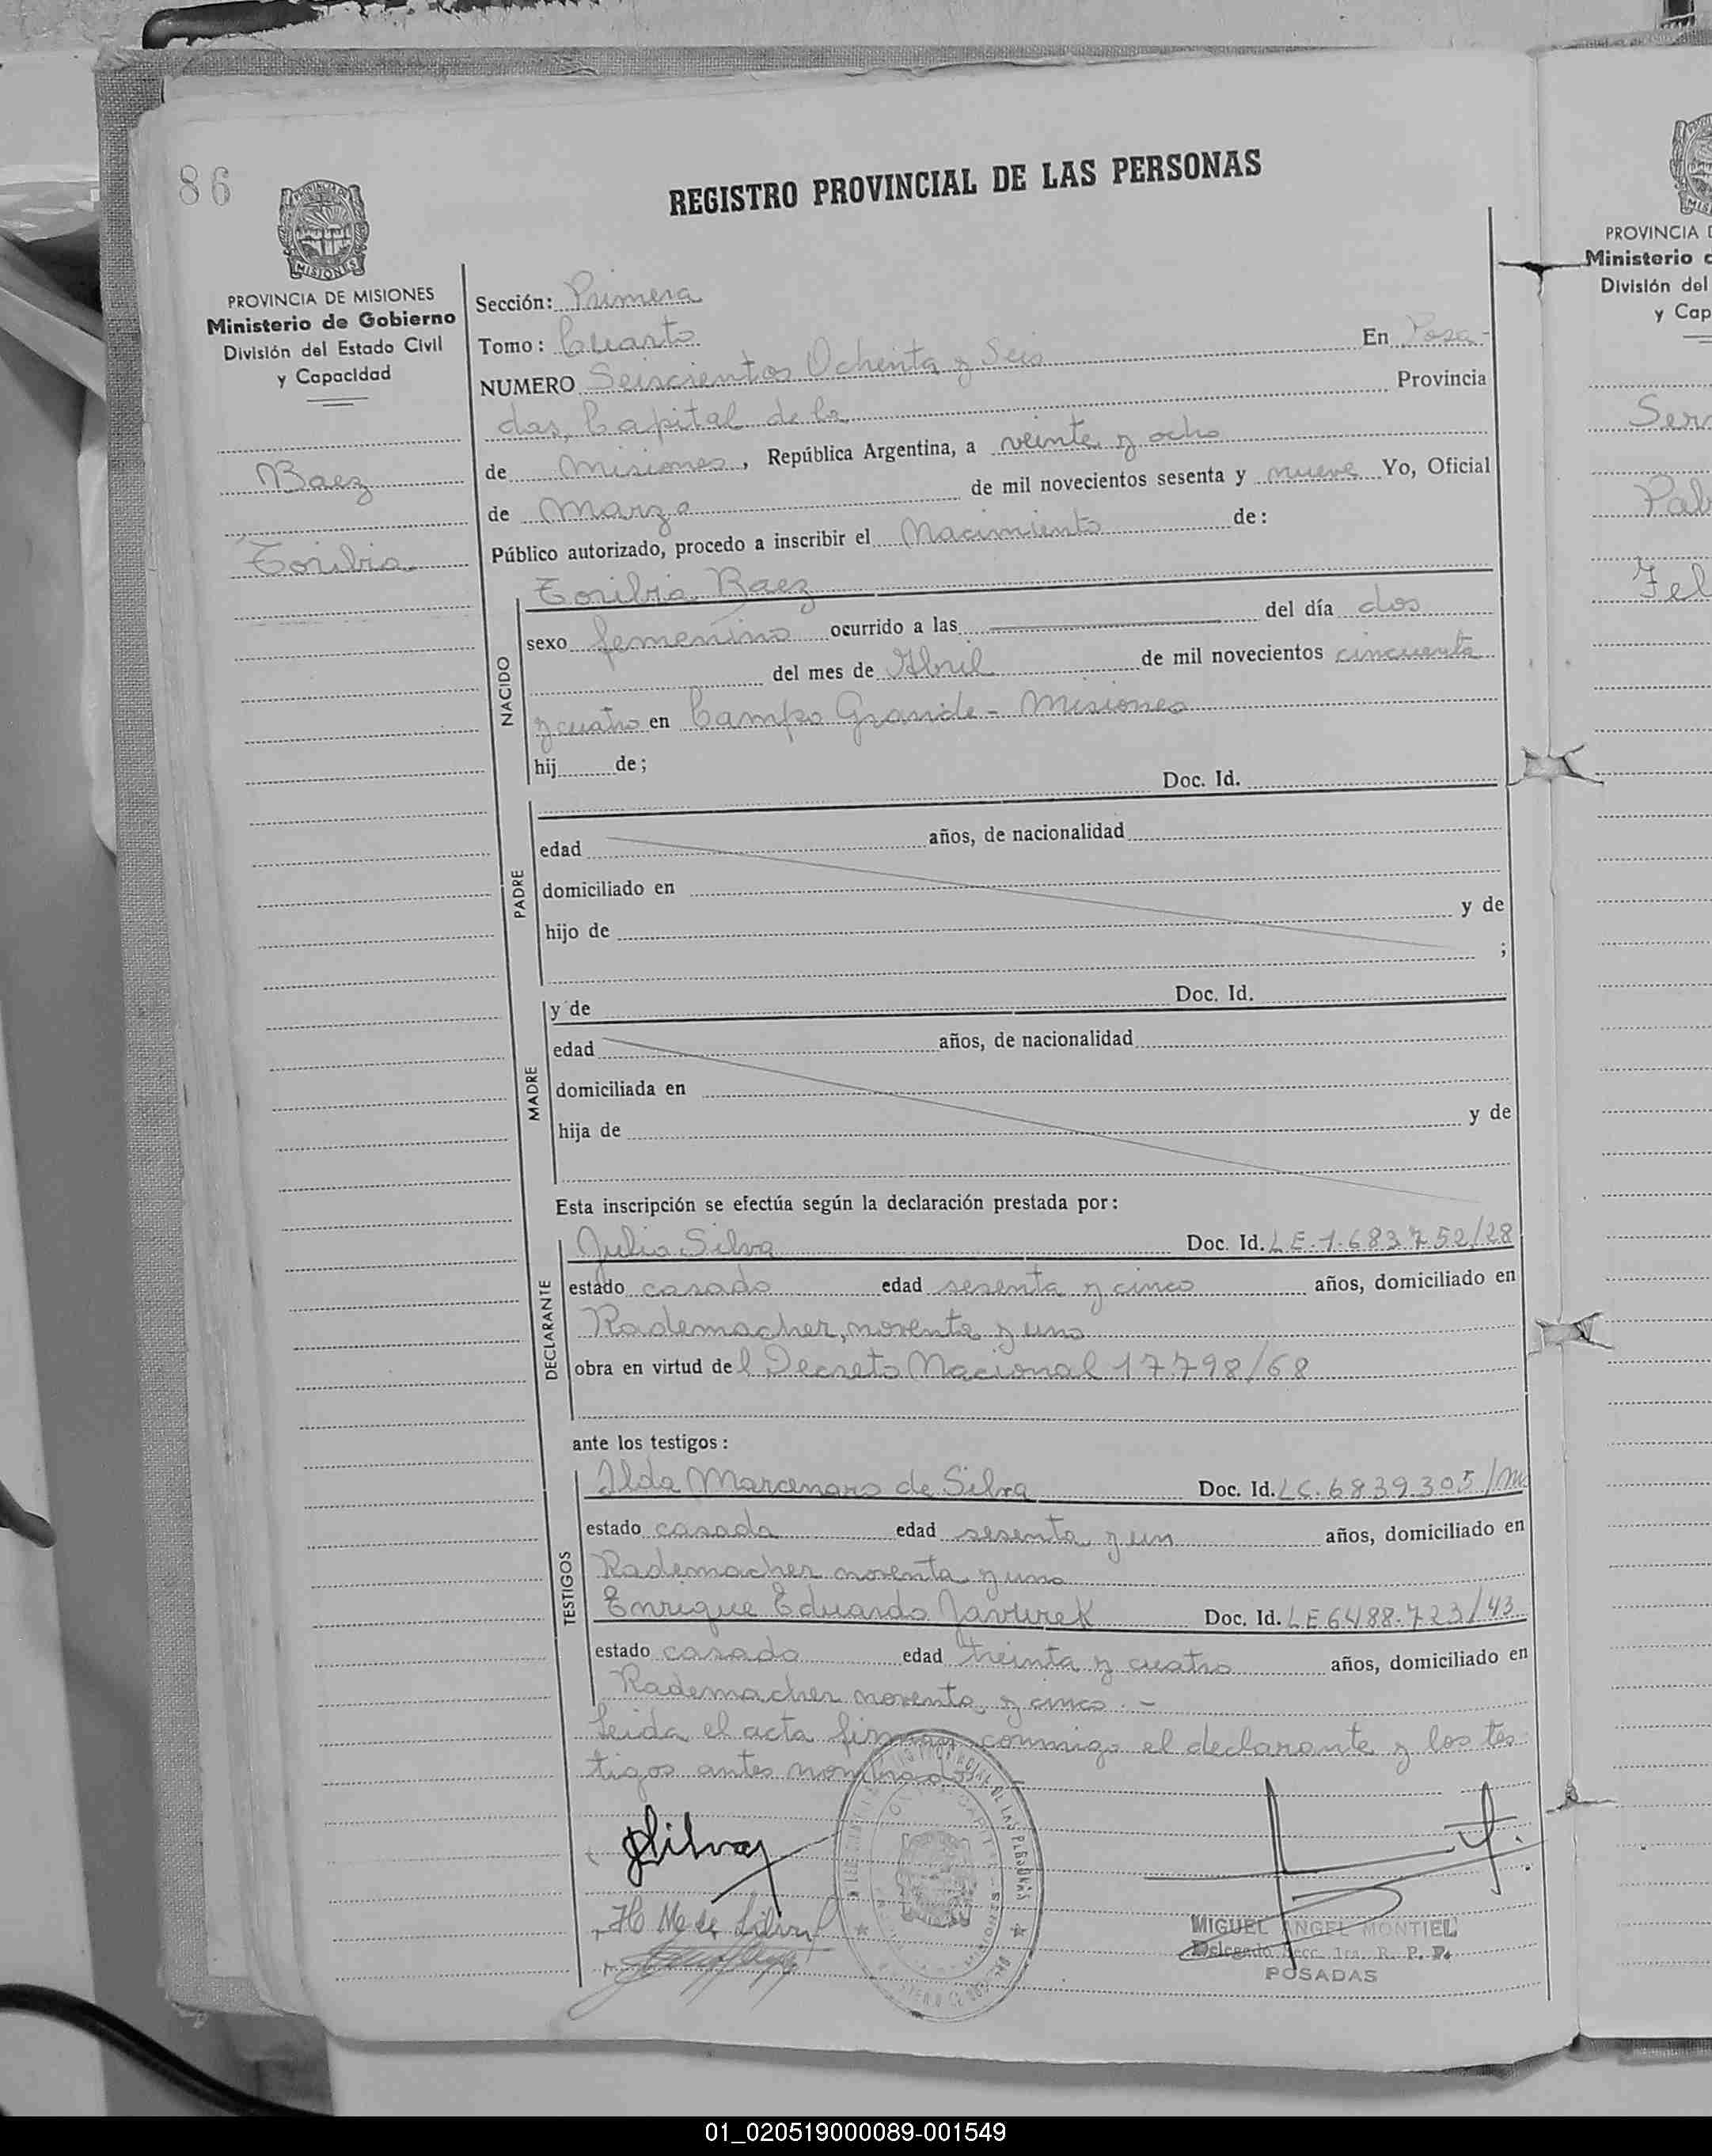 86
REGISTRO PROVINCIAL DE LAS PERSONAS
MISIONES
PROVINCIA DE MISIONES
Ministerio de Gobierno
División del Estado Civil
y Capacidad
Baez
Toribia
Sección: Primera
Tomo: Cuarto
En Posa-
NUMERO Seiscientos Ochenta y Seis
das, Capital de la Provincia
de Misiones, República Argentina, a veinte y ocho
de Marzo de mil novecientos sesenta y nueve Yo, Oficial
Público autorizado, procedo a inscribir el Nacimiento de:
NACIDO
Toribia Baez
sexo femenino ocurrido a las del día dos
del mes de Abril de mil novecientos cincuenta
y cuatro en Campo Grande - Misiones
hij de;
PADRE
Doc. Id.
edad años, de nacionalidad
domiciliado en
hijo de y de
;
MADRE
y de Doc. Id.
edad años, de nacionalidad
domiciliada en
hija de y de
Esta inscripción se efectúa según la declaración prestada por:
DECLARANTE
Julio Silva Doc. Id. L E. 1.683752/28
estado casado edad sesenta y cinco años, domiciliado en
Rademacher, noventa y uno
obra en virtud del Decreto Nacional 17.798/68
ante los testigos:
TESTIGOS
Ilda Marcenaro de Silva Doc. Id. LC. 6839.305/M
estado casada edad sesenta y un años, domiciliado en
Rademacher noventa y uno
Enrique Eduardo Doc. Id. LE 6488.723/43
estado casado edad treinta y cuatro años, domiciliado en
Rademacher noventa y cinco.-
Leida el acta firman conmigo el declarante y los tes-
tigos antes nombrados.-
JSilva
H M de Silva
MIGUEL ANGEL MONTIEL
Delegado Secc. 1ra. R. P. P.
POSADAS
PROVINCIA D
Ministerio d
División del
y Cap
Serv
Pab
Fel
01_020519000089-001549